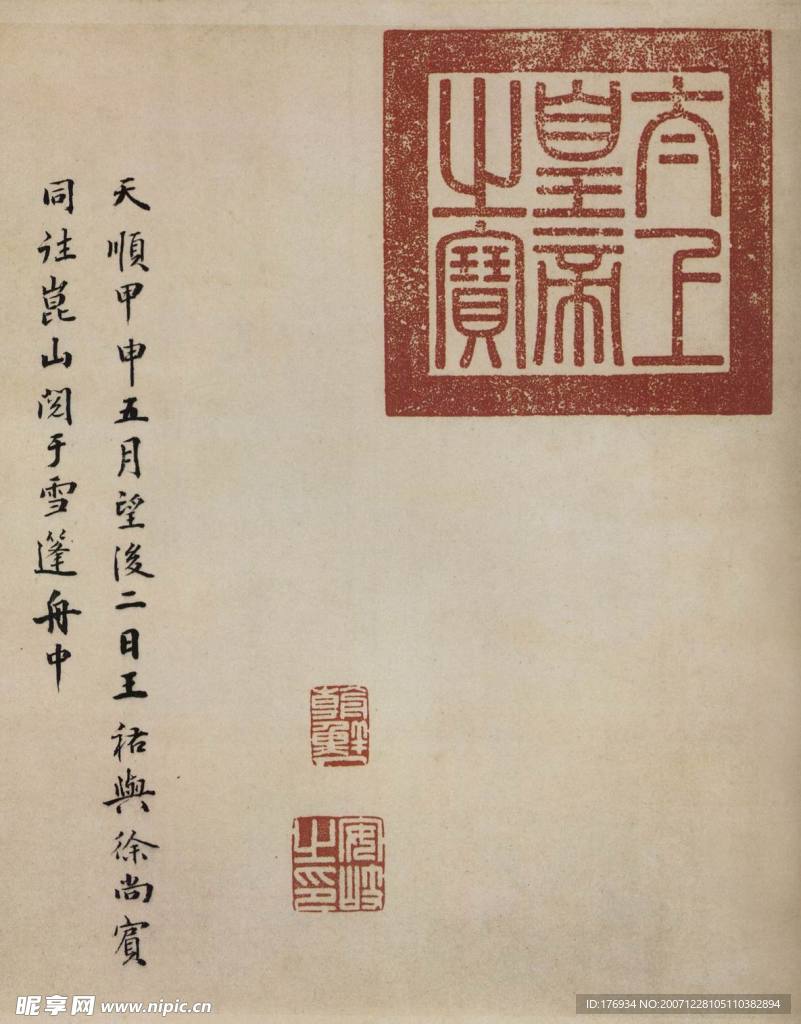 太上
皇帝
之寶
天順甲申五月望後二日王祐與徐尚賓
同往崑山閱于雪篷舟中
朝鮮
安岐
之印
昵享网 www.nipic.cn
ID:176934 NO:20071228105110382894